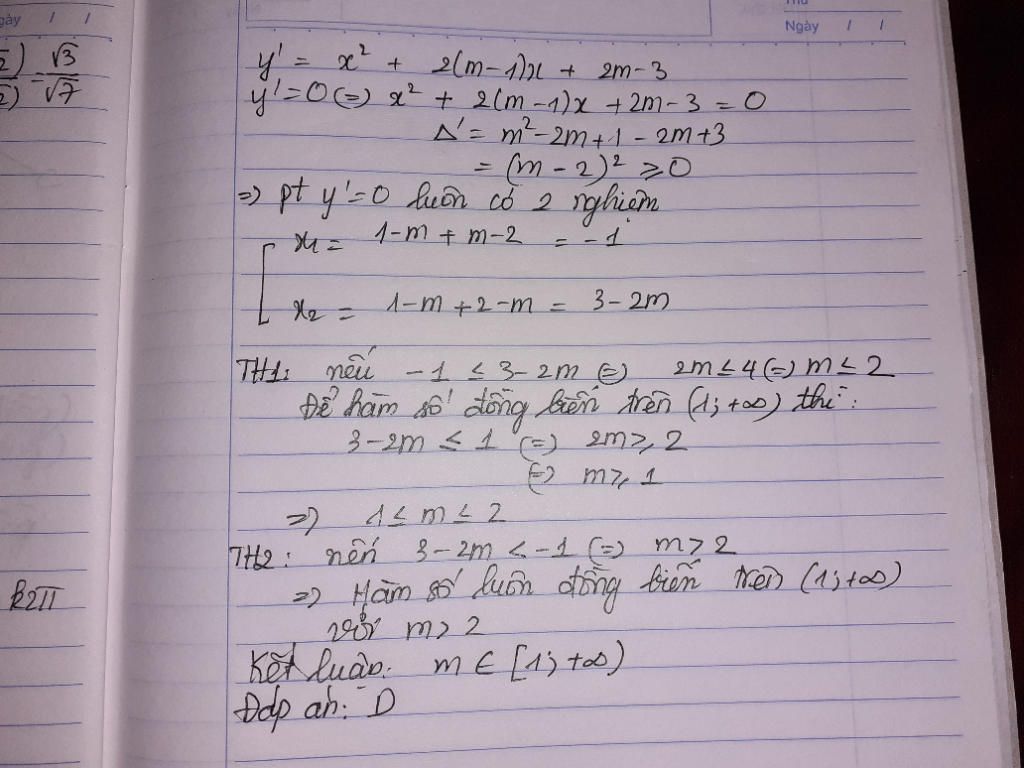 gày / /
Thứ
Ngày / /
√3
2) = √7
2)
y' = x² + 2(m-1)x + 2m-3
y'=0 (=) x² + 2(m-1)x + 2m-3 = 0
Δ' = m²-2m+1 - 2m+3
= (m-2)² ≥ 0
=> pt y'=0 luôn có 2 nghiệm
x₁ = 1-m + m-2 = -1
x₂ = 1-m + 2-m = 3-2m
TH1: nếu -1 ≤ 3-2m (=) 2m ≤ 4 (=) m ≤ 2
Để hàm số đồng biến trên (1; +∞) thì:
3-2m ≤ 1 (=) 2m ≥ 2
(=) m ≥ 1
=> 1 ≤ m ≤ 2
TH2: nến 3-2m < -1 (=) m > 2
=> Hàm số luôn đồng biến trên (1; +∞)
với m > 2
k2π
Kết luận: m ∈ [1; +∞)
Đáp án: D